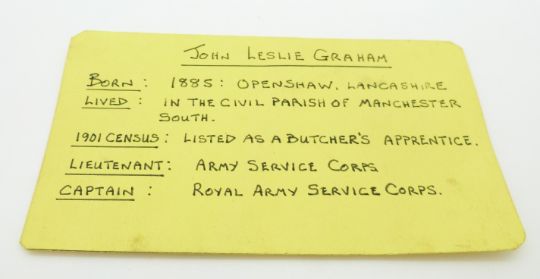 JOHN LESLIE GRAHAM
BORN : 1885 : OPENSHAW, LANCASHIRE
LIVED : IN THE CIVIL PARISH OF MANCHESTER
SOUTH.
1901 CENSUS : LISTED AS A BUTCHER'S APPRENTICE.
LIEUTENANT : ARMY SERVICE CORPS
CAPTAIN : ROYAL ARMY SERVICE CORPS.